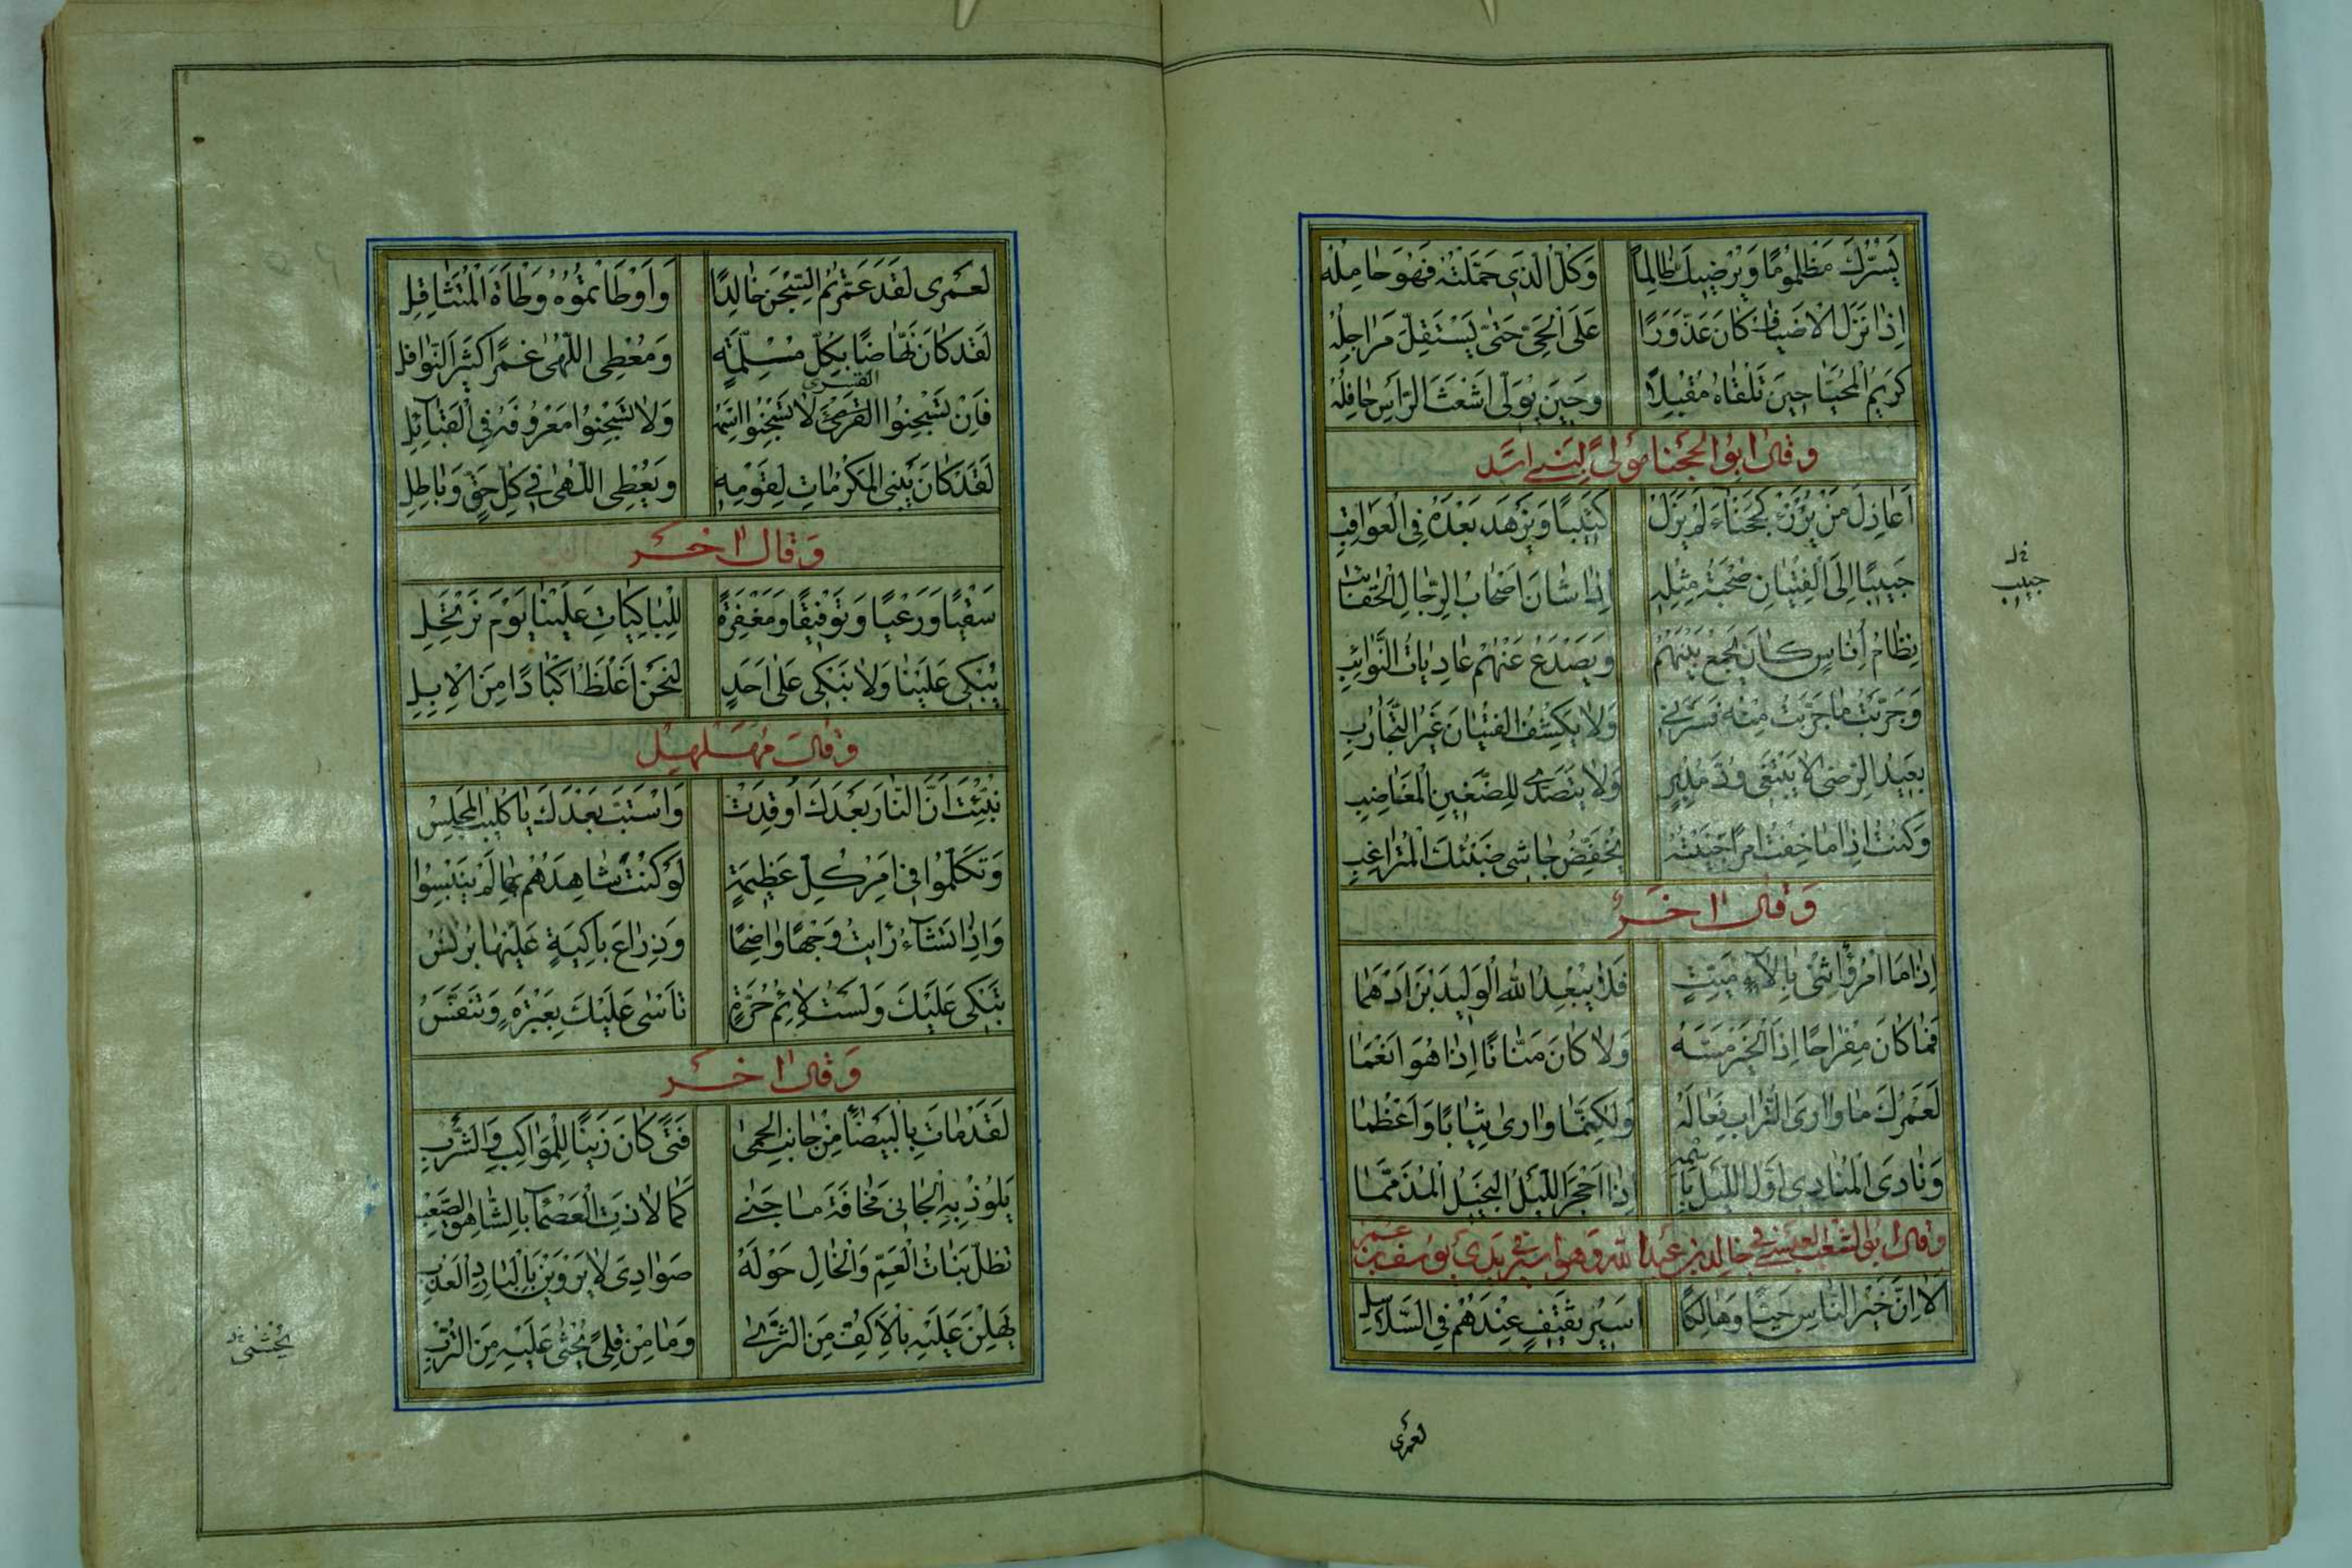 يَسُرُّكَ مَظْلُومًا وَيُرْضِيكَ ظَالِمًا وَكُلُّ الَّذِي حَمَّلْتَهُ فَهُوَ حَامِلُهُ
إِذَا نَزَلَ الْأَضْيَافُ كَانَ عَذَوَّرًا عَلَى الْحَيِّ حَتَّى تَسْتَقِلَّ مَرَاجِلُهُ
كَرِيمُ الْمُحَيَّا حِينَ تَلْقَاهُ مُقْبِلًا وَحِينَ يُوَلِّي أَشْعَثَ الرَّأْسِ حَافِلُهُ
وقال ابو الحجنا مولى لبني اسد
أَعَاذِلَ مَنْ يُرْزَءْ كَحَجْنَاءَ لَمْ يَزَلْ كَئِيبًا وَيَزْهَدْ بَعْدَهُ فِي الْعَوَاقِبِ
حَبِيبًا إِلَى الْفِتْيَانِ صُحْبَةُ مِثْلِهِ إِذَا شَانَ أَصْحَابَ الرِّجَالِ الْحَقَائِبُ
نِظَامُ أُنَاسٍ كَانَ يَجْمَعُ بَيْنَهُمْ وَيَصْدَعُ عَنْهُمْ عَادِيَاتِ النَّوَائِبِ
وَجَرَّبْتُ مَا جَرَّبْتُ مِنْهُ فَسَرَّنِي وَلَا يَكْشِفُ الْفِتْيَانَ غَيْرُ التَّجَارِبِ
بَعِيدُ الرِّضَى لَا يَبْتَغِي وُدَّ مُدْبِرٍ وَلَا يَتَصَدَّى لِلضَّغِينِ الْمُغَاضِبِ
وَكُنْتُ إِذَا مَا خِفْتُ أَمْرًا جَنَيْتُهُ يُخَفِّضُ جَاشِي ضَبْثُكَ الْمُتَرَاغِبِ
وَقَالَ اخَر
إِذَا مَا امْرُؤٌ أَثْنَى بِآلَاءِ مَيِّتٍ فَلَا يُبْعِدِ اللهُ الْوَلِيدَ بْنَ أَدْهَمَا
فَمَا كَانَ مِفْرَاحًا إِذَا الْخَيْرُ مَسَّهُ وَلَا كَانَ مَنَّانًا إِذَا هُوَ أَنْعَمَا
لَعَمْرُكَ مَا وَارَى التُّرَابُ فِعَالَهُ وَلَكِنَّمَا وَارَى ثِيَابًا وَأَعْظُمَا
وَنَادَى الْمُنَادِي أَوَّلَ اللَّيْلِ بِاسْمِهِ إِذَا أَجْحَرَ اللَّيْلُ الْبَخِيلَ الْمُذَمَّمَا
وقال ابو الشغب العبسي في خالد بن عبد الله وهو اسير في يدي يوسف بن عمر
أَلَا إِنَّ خَيْرَ النَّاسِ حَيًّا وَهَالِكًا أَسِيرُ ثَقِيفٍ عِنْدَهُمْ فِي السَّلَاسِلِ
حبيب
لعمرى
لَعَمْرِي لَقَدْ عَمَّرْتُمُ السِّجْنَ خَالِدًا وَأَوْطَأْتُمُوهُ وَطْأَةَ الْمُتَثَاقِلِ
لَقَدْ كَانَ نَهَّاضًا بِكُلِّ مُلِمَّةٍ وَمُعْطِي اللُّهَى غَمْرًا كَثِيرَ النَّوَافِلِ
القسرى
فَإِنْ تَسْجِنُوا الْقَسْرِيَّ لَا تَسْجِنُوا اسْمَهُ وَلَا تَسْجِنُوا مَعْرُوفَهُ فِي الْقَبَائِلِ
لَقَدْ كَانَ يَبْنِي الْمَكْرُمَاتِ لِقَوْمِهِ وَيُعْطِي اللُّهَى فِي كُلِّ حَقٍّ وَبَاطِلِ
وَقَالَ اخَر
سَقْيًا وَرَعْيًا وَتَوْفِيقًا وَمَغْفِرَةً لِلْبَاكِيَاتِ عَلَيْنَا يَوْمَ نَرْتَحِلِ
يُبْكَى عَلَيْنَا وَلَا نَبْكِي عَلَى أَحَدٍ لَنَحْنُ أَغْلَظُ أَكْبَادًا مِنَ الْإِبِلِ
وَقَالَ مُهَلْهِل
نُبِّئْتُ أَنَّ النَّارَ بَعْدَكَ أُوقِدَتْ وَاسْتَبَّ بَعْدَكَ يَا كُلَيْبُ الْمَجْلِسُ
وَتَكَلَّمُوا فِي أَمْرِ كُلِّ عَظِيمَةٍ لَوْ كُنْتَ شَاهِدَهُمْ بِهَا لَمْ يَنْبِسُوا
وَإِذَا تَشَاءُ رَأَيْتَ وَجْهًا وَاضِحًا وَذِرَاعَ بَاكِيَةٍ عَلَيْهَا بُرْنُسُ
تَبْكِي عَلَيْكَ وَلَسْتُ لَائِمَ حُرَّةٍ تَأْسَى عَلَيْكَ بِعَبْرَةٍ وَتَنَفَّسُ
وَقَالَ اخَر
لَقَدْ مَاتَ بِالْبَيْضَاءِ مِنْ جَانِبِ الْحِمَى فَتًى كَانَ زَيْنًا لِلْمَوَاكِبِ وَالشَّرْبِ
يَلُوذُ بِهِ الْجَانِي مَخَافَةَ مَا جَنَى كَمَا لَاذَتِ الْعَصْمَاءُ بِالشَّاهِقِ الصَّعْبِ
تَظَلُّ بَنَاتُ الْعَمِّ وَالْخَالِ حَوْلَهُ صَوَادِيَ لَا يَرْوَيْنَ بِالْبَارِدِ الْعَذْبِ
يَهِلْنَ عَلَيْهِ بِالْأَكُفِّ مِنَ الثَّرَى وَمَا مِنْ قِلًى يُحْثَى عَلَيْهِ مِنَ التُّرْبِ